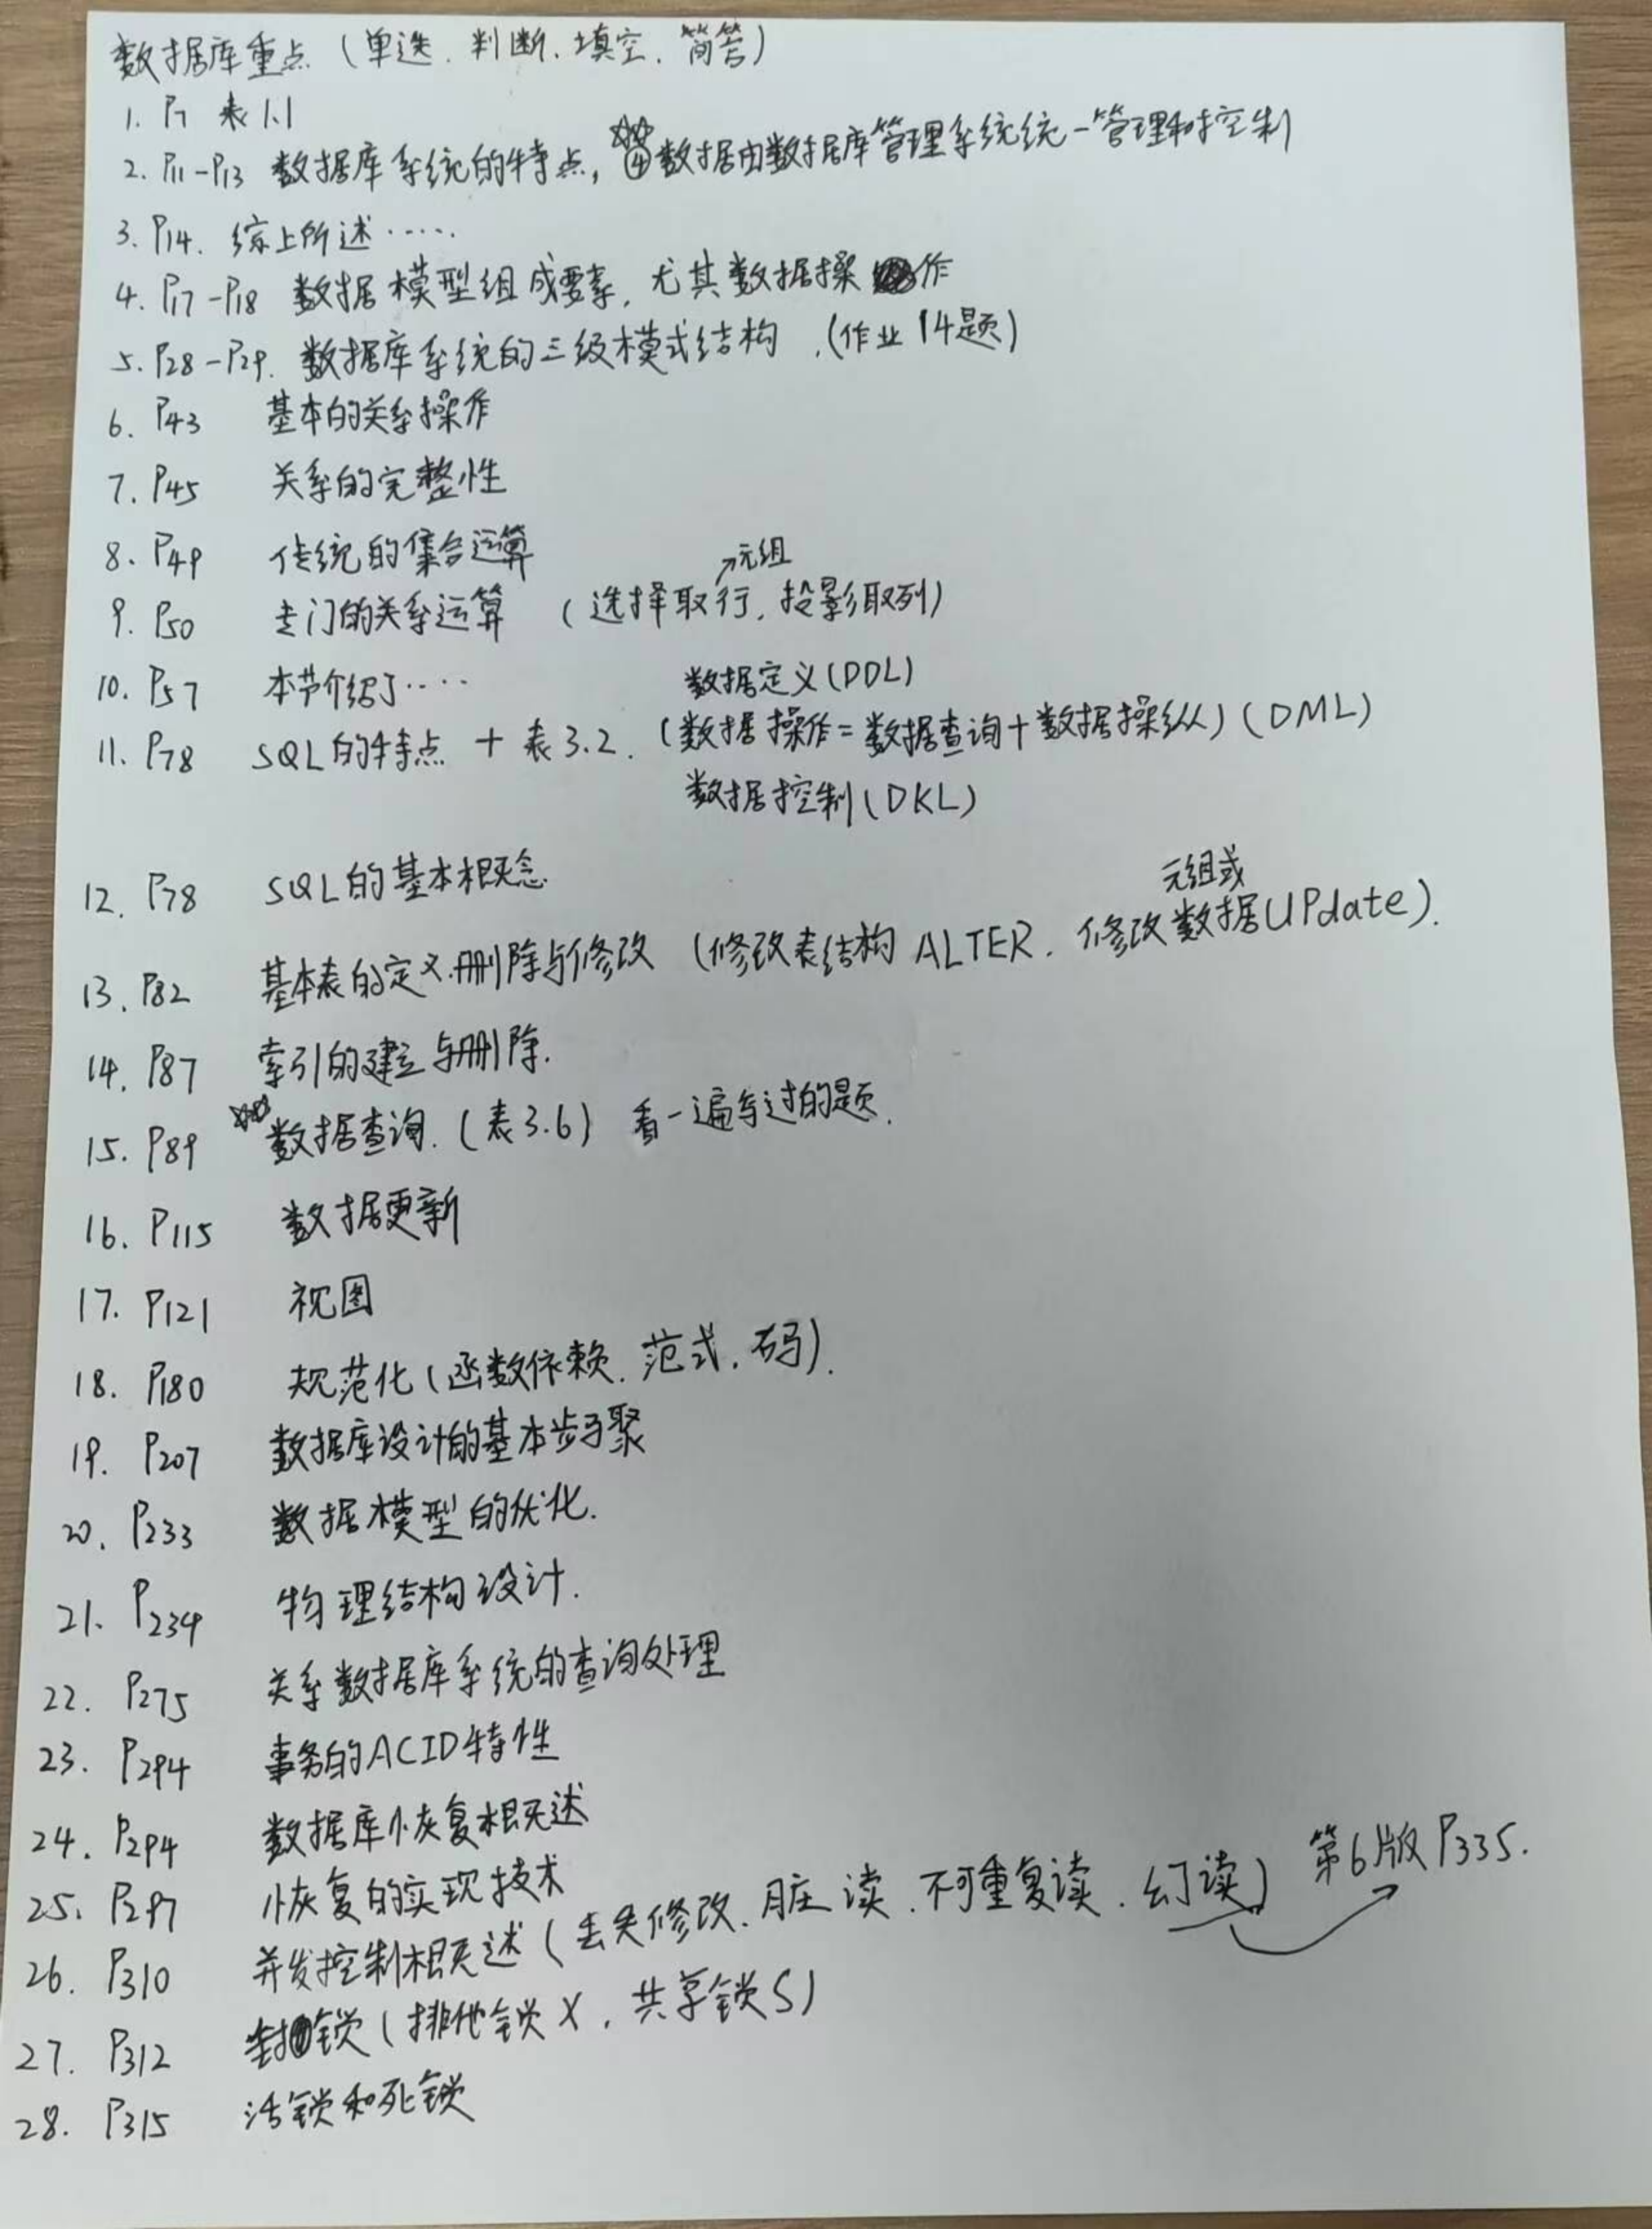 数据库重点（单选.判断.填空.简答）
1. P7 表1.1
2. P11-P13 数据库系统的特点, ☆☆④数据由数据库管理系统统一管理和控制
3. P14. 综上所述……
4. P17-P18 数据模型组成要素, 尤其数据操作
5. P28-P29. 数据库系统的三级模式结构.(作业14题)
6. P43 基本的关系操作
7. P45 关系的完整性
8. P49 传统的集合运算
↗元组
9. P50 专门的关系运算 (选择取行, 投影取列)
10. P57 本节介绍了…… 数据定义(DDL)
11. P78 SQL的特点 + 表3.2. (数据操作=数据查询+数据操纵)(DML)
数据控制(DKL)
12. P78 SQL的基本概念
元组或
13. P82 基本表的定义.删除与修改 (修改表结构ALTER. 修改数据UPdate).
14. P87 索引的建立与删除.
15. P89 ☆☆数据查询.(表3.6) 看一遍写过的题.
16. P115 数据更新
17. P121 视图
18. P180 规范化(函数依赖. 范式. 码).
19. P207 数据库设计的基本步骤
20. P233 数据模型的优化.
21. P234 物理结构设计.
22. P275 关系数据库系统的查询处理
23. P294 事务的ACID特性
24. P294 数据库恢复概述
25. P297 恢复的实现技术
26. P310 并发控制概述(丢失修改.脏读.不可重复读.幻读) 第6版P335.
27. P312 封锁(排他锁X, 共享锁S)
28. P315 活锁和死锁